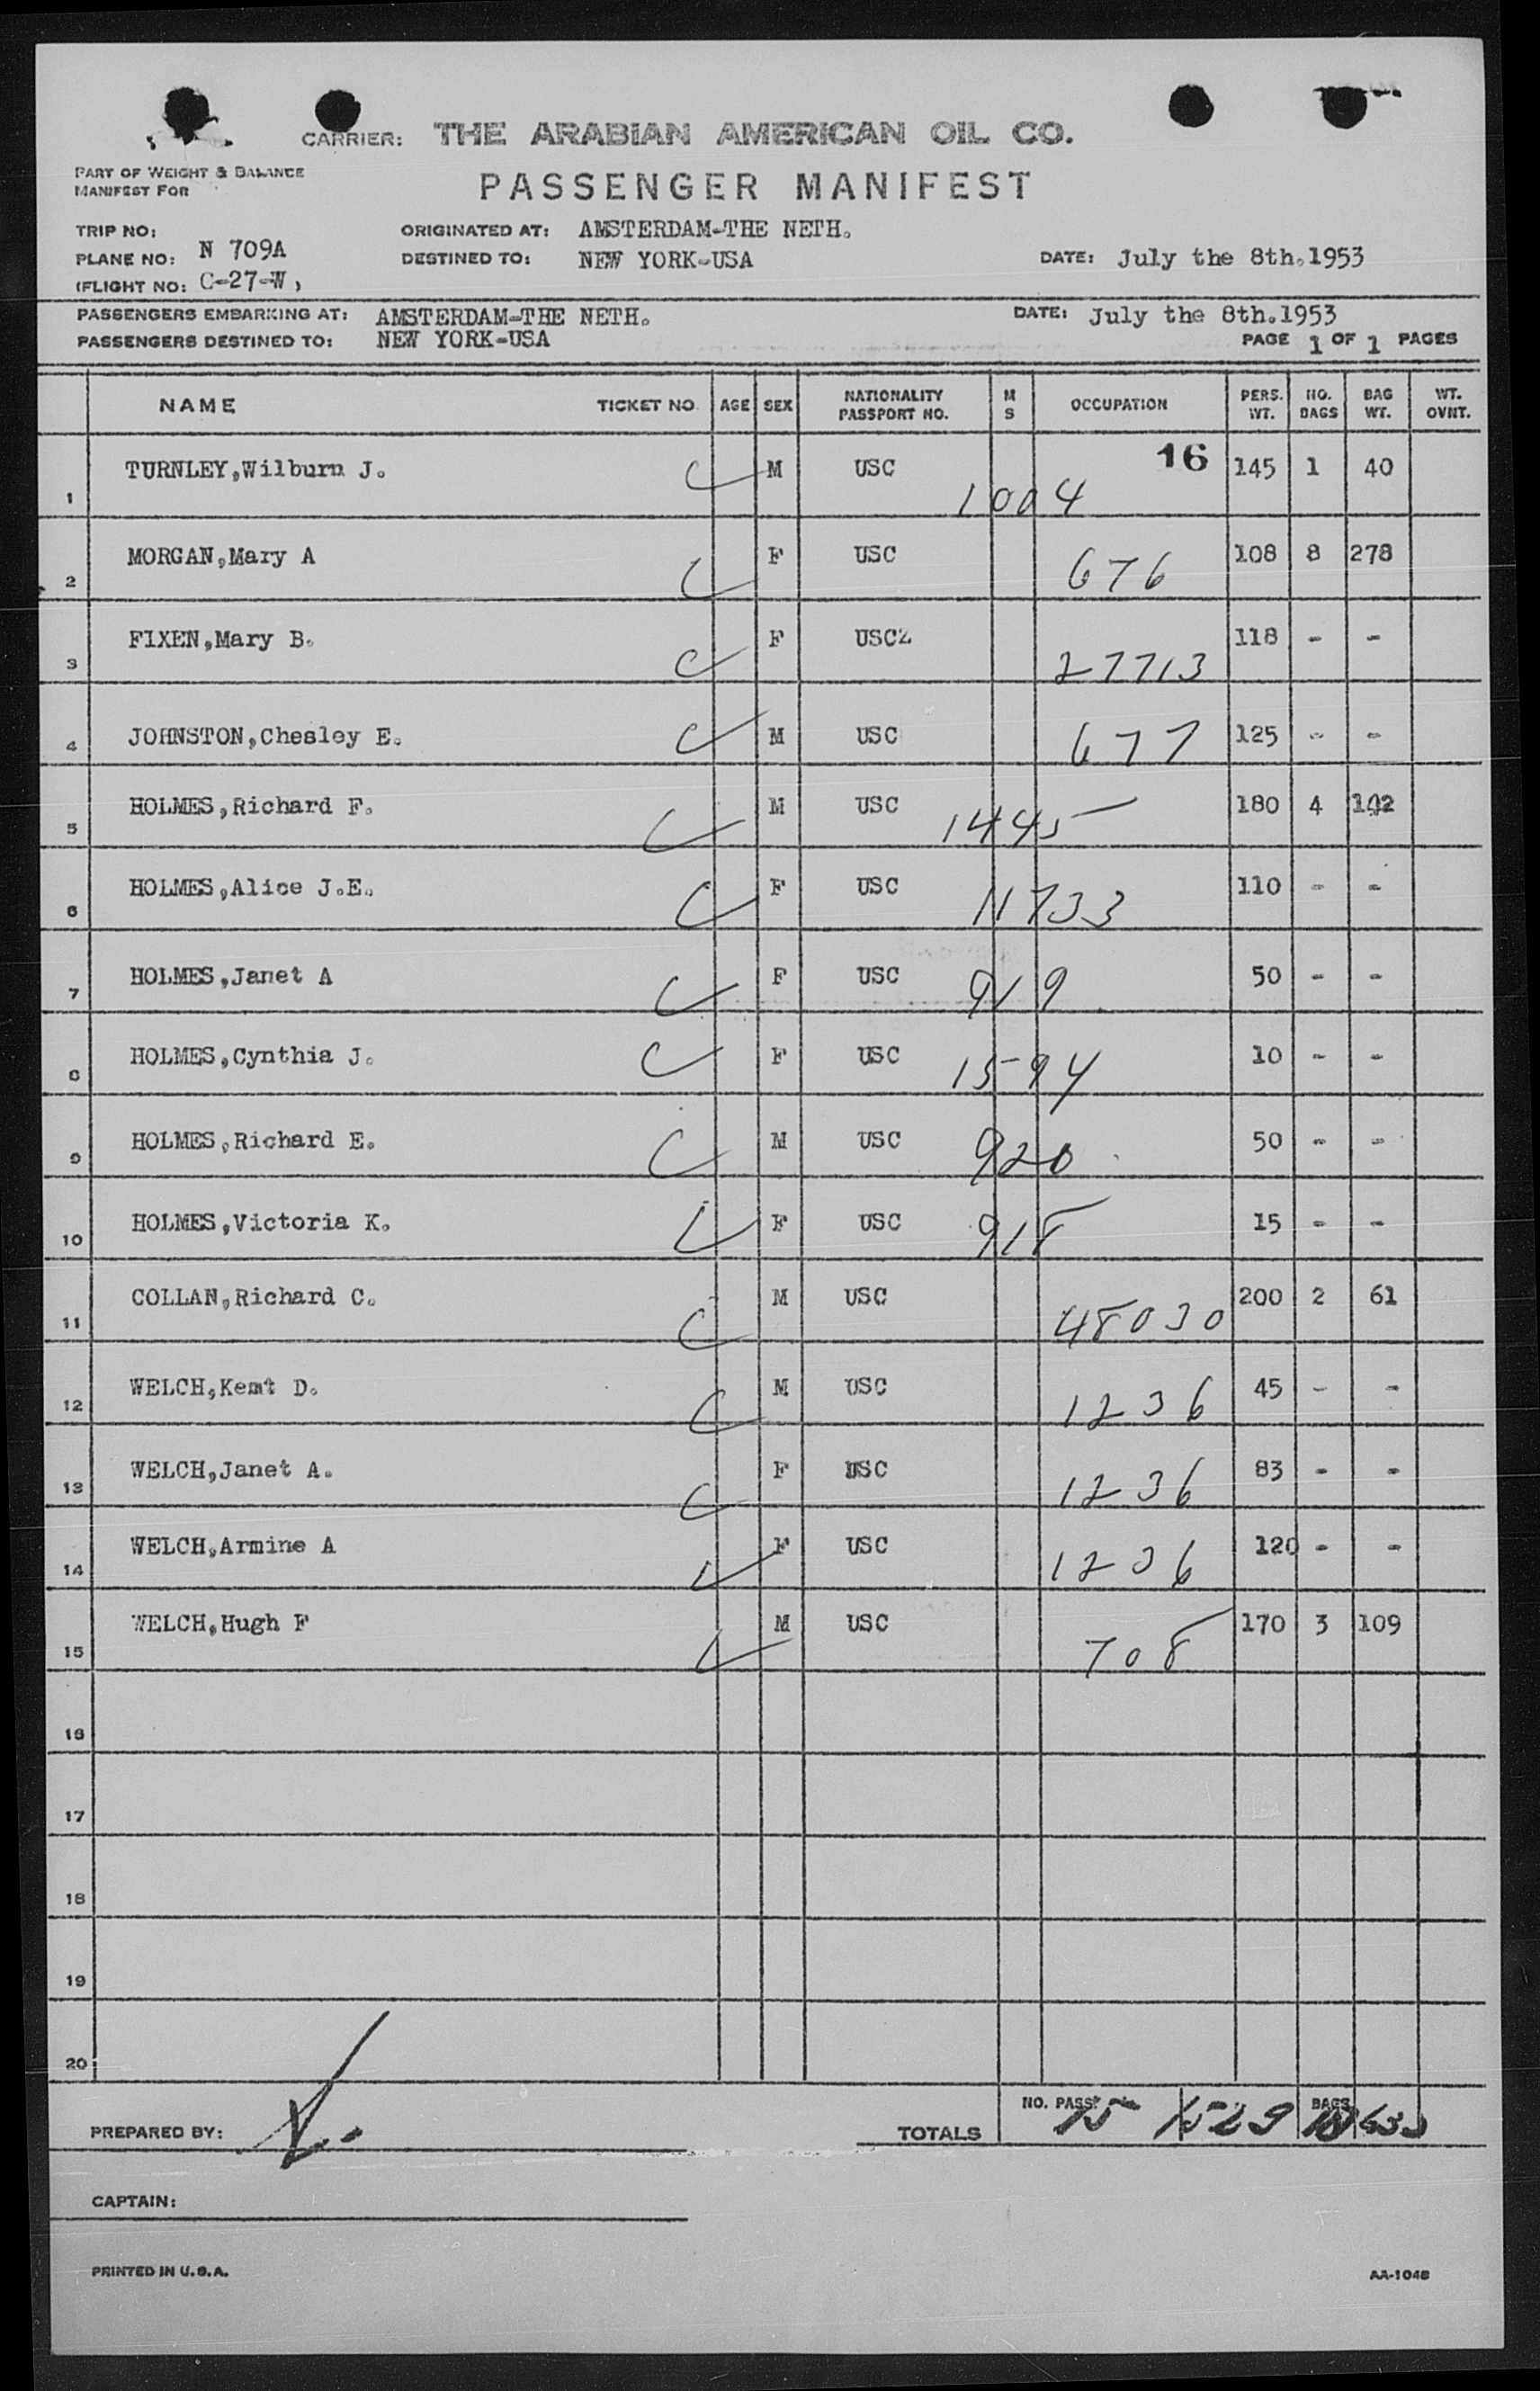 CARRIER: THE ARABIAN AMERICAN OIL CO.
PART OF WEIGHT & BALANCE
MANIFEST FOR
PASSENGER MANIFEST
TRIP NO:
ORIGINATED AT: AMSTERDAM-THE NETH.
PLANE NO: N 709A
DESTINED TO: NEW YORK-USA
DATE: July the 8th.1953
(FLIGHT NO: C-27-W)
PASSENGERS EMBARKING AT: AMSTERDAM-THE NETH.
DATE: July the 8th.1953
PASSENGERS DESTINED TO: NEW YORK-USA
PAGE 1 OF 1 PAGES
NAME TICKET NO. AGE SEX NATIONALITY PASSPORT NO. M S OCCUPATION PERS. WT. NO. BAGS BAG WT. WT. OVNT.
1 TURNLEY,Wilburn J. M USC 1004 16 145 1 40
2 MORGAN,Mary A F USC 676 108 8 278
3 FIXEN,Mary B. F USC 27713 118 - -
4 JOHNSTON,Chesley E. M USC 677 125 - -
5 HOLMES,Richard F. M USC 1445 180 4 142
6 HOLMES,Alice J.E. F USC 11733 110 - -
7 HOLMES,Janet A F USC 919 50 - -
8 HOLMES,Cynthia J. F USC 1594 10 - -
9 HOLMES,Richard E. M USC 920 50 - -
10 HOLMES,Victoria K. F USC 918 15 - -
11 COLLAN,Richard C. M USC 48030 200 2 61
12 WELCH,Kemt D. M USC 1236 45 - -
13 WELCH,Janet A. F USC 1236 83 - -
14 WELCH,Armine A F USC 1236 120 - -
15 WELCH,Hugh F M USC 708 170 3 109
16
17
18
19
20
PREPARED BY:
TOTALS NO. PASS. 15 1529 BAGS 18
CAPTAIN:
PRINTED IN U.S.A.
AA-1048